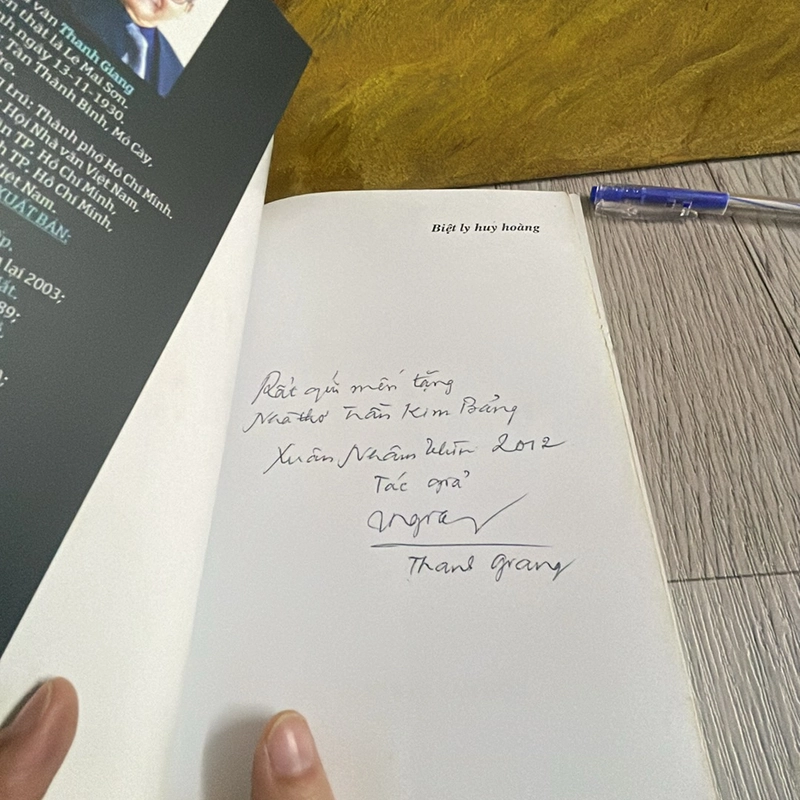 văn Thanh Giang
thật là Lê Mai Sơn.
ngày 13-11-1930.
Tân Thành Bình, Mỏ Cày,
trú: Thành phố Hồ Chí Minh.
Hội Nhà văn Việt Nam,
TP. Hồ Chí Minh,
TP. Hồ Chí Minh,
Việt Nam.
XUẤT BẢN:
lại 2003;
89;
Biệt ly huy hoàng
Rất quí mến tặng
Nhà thơ Trần Kim Bảng
Xuân Nhâm Thìn 2012
Tác giả
Thanh Giang